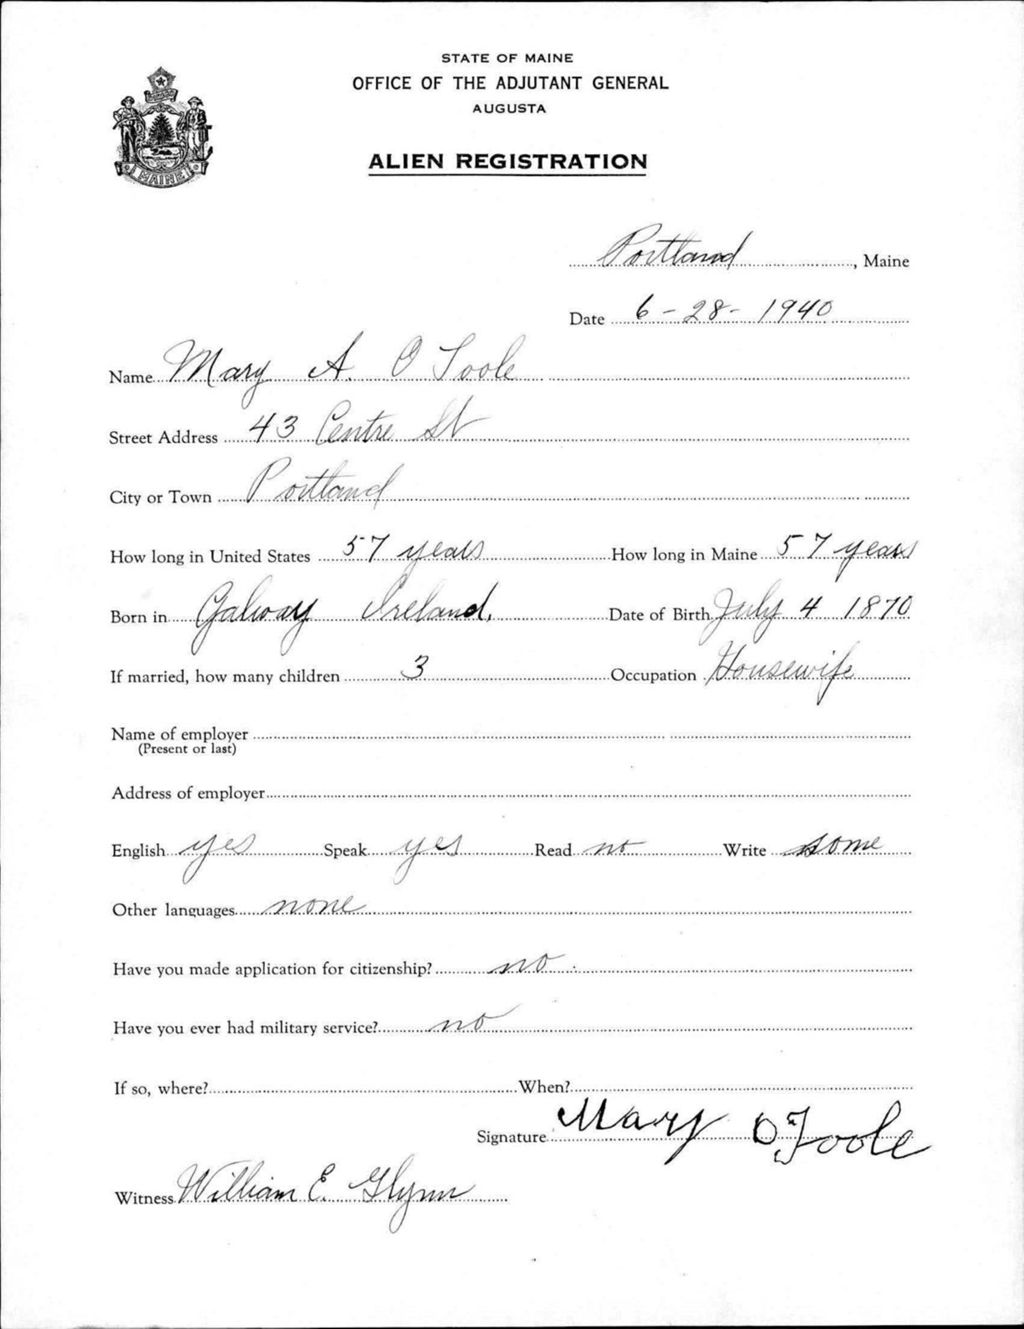 STATE OF MAINE
OFFICE OF THE ADJUTANT GENERAL
AUGUSTA
MAINE
ALIEN REGISTRATION
Portland, Maine
Date 6-28-1940
Name Mary A. O Toole
Street Address 43 Centre St
City or Town Portland
How long in United States 57 years How long in Maine 57 years
Born in Galway Ireland. Date of Birth July 4 1870
If married, how many children 3 Occupation Housewife
Name of employer
(Present or last)
Address of employer
English yes Speak yes Read no Write some
Other languages none
Have you made application for citizenship? no
Have you ever had military service? no
If so, where? When?
Signature Mary O Toole
Witness William E. Glynn